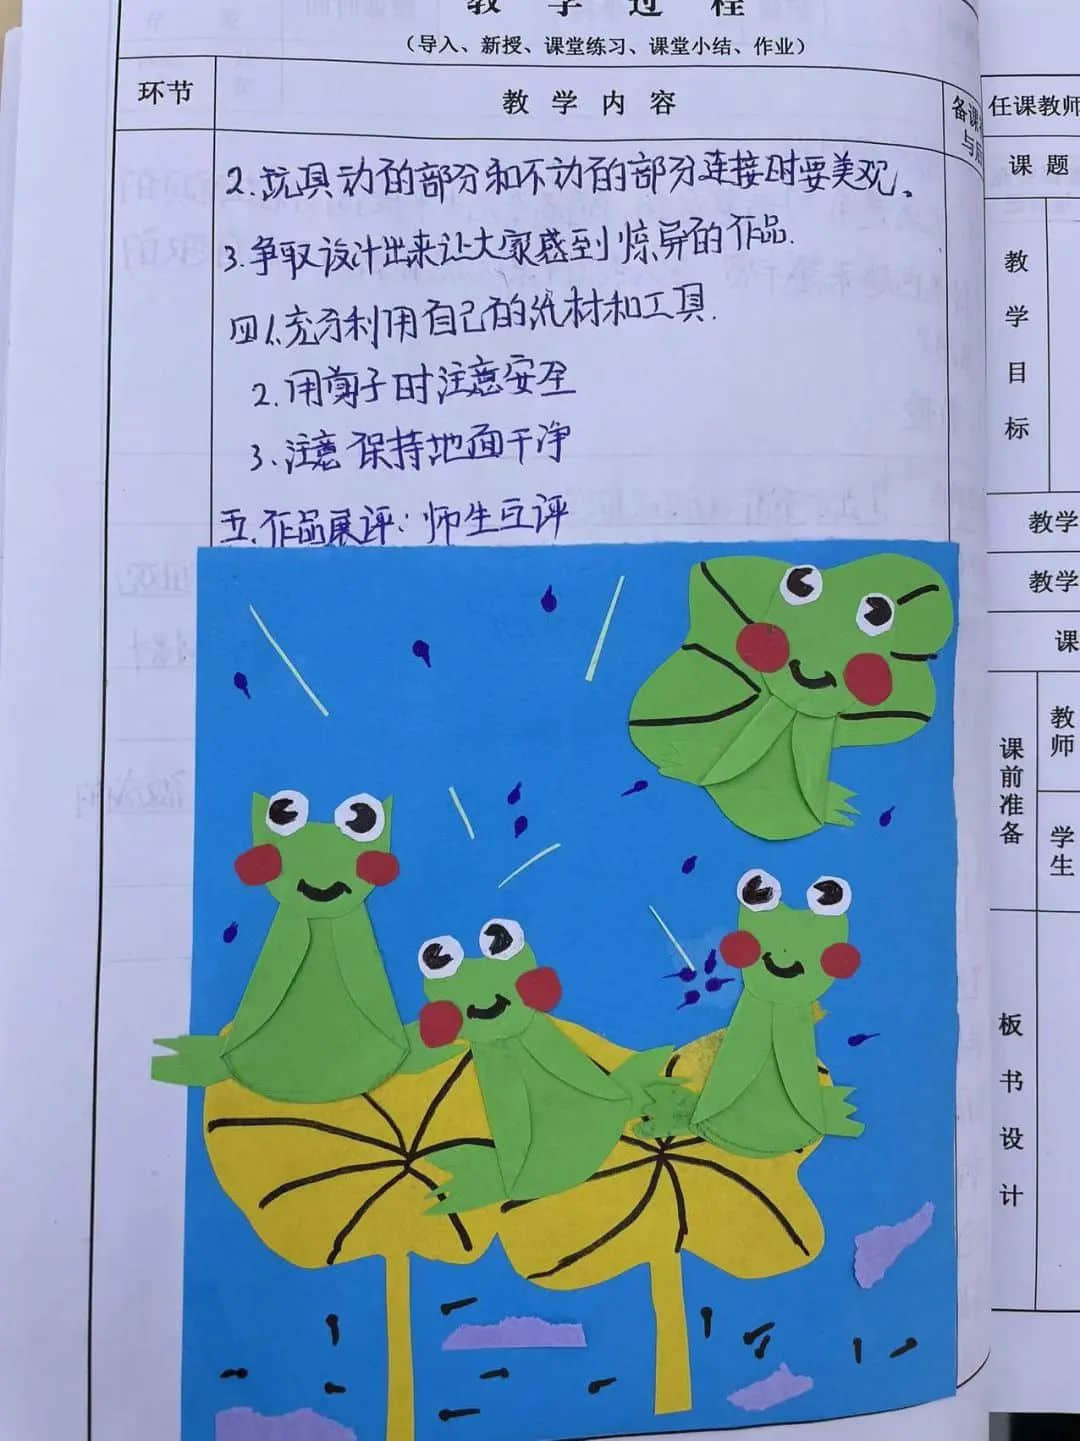 教 学 过 程
（导入、新授、课堂练习、课堂小结、作业）
环节
教 学 内 容
备课
与
2.玩具动的部分和不动的部分连接时要美观。
3.争取设计出来让大家感到惊异的作品.
四1.充分利用自己的纸材和工具.
2.用剪子时注意安全
3.注意保持地面干净
五.作品展评：师生互评
任课教师
课 题
教学目标
教学
教学
课
课前准备
教师
学生
板书设计